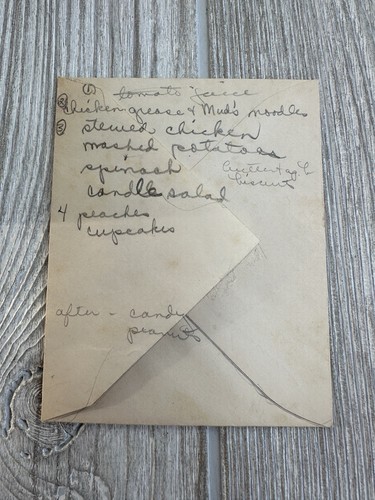 ① tomato juice
② Chicken grease & Mud's noodles
③ stewed chicken
mashed potatoes
spinach
candle salad
biscuits
4 peaches
cupcakes
after - candy
peanuts